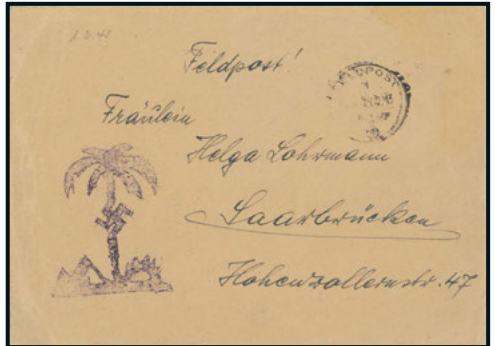 1.3.43
Feldpost!
FELDPOST
Fräulein
Helga Lohrmann
Saarbrücken
Hohenzollernstr. 47